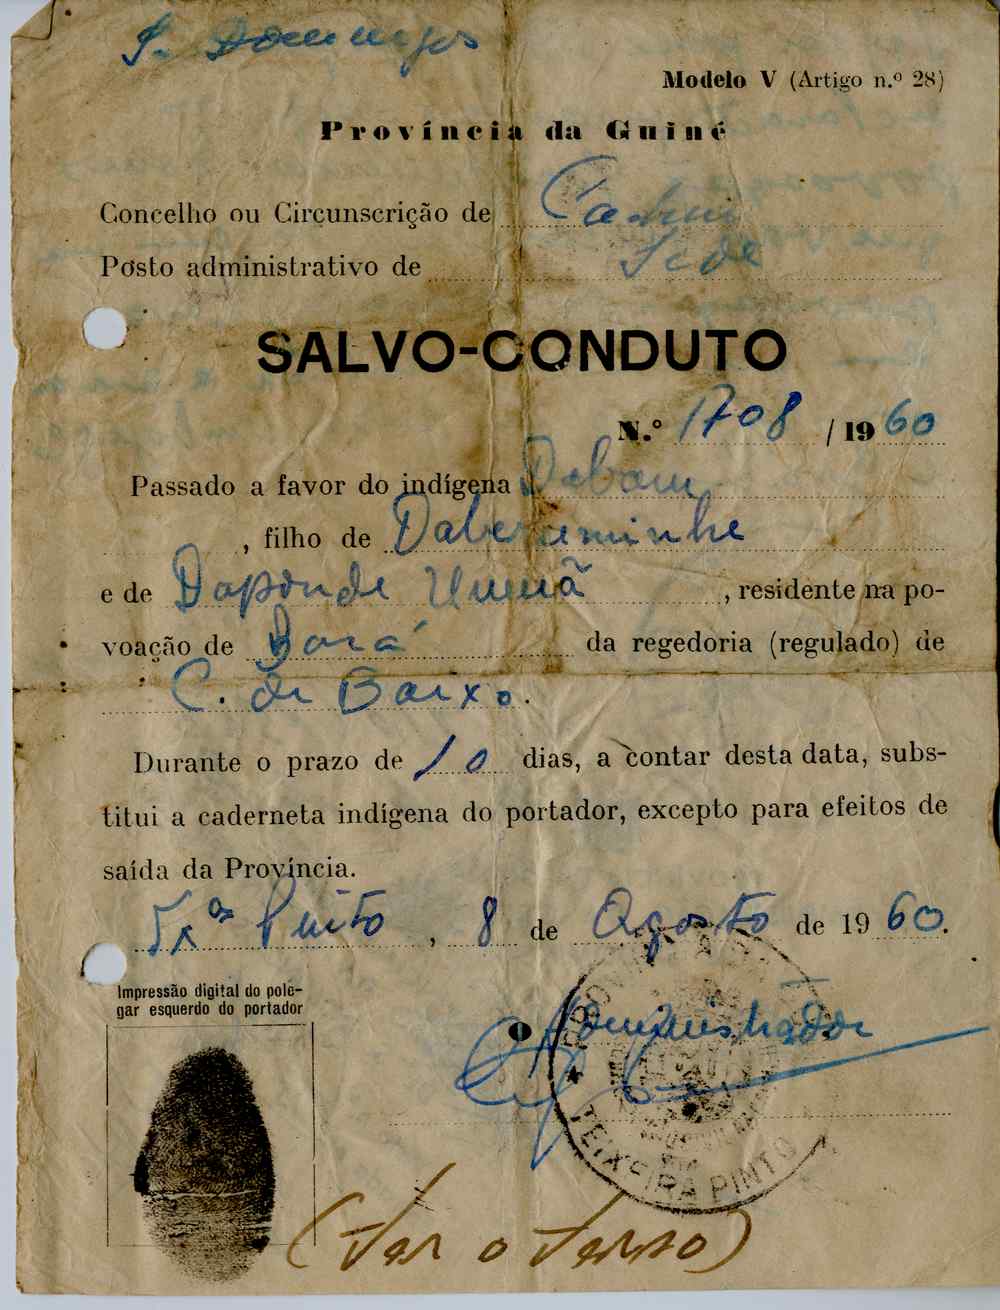 S. Domingos
Modelo V (Artigo n.º 28)
Província da Guiné
Concelho ou Circunscrição de
Posto administrativo de Sede
SALVO-CONDUTO
N.º 1708 / 1960
Passado a favor do indígena Dabam
, filho de
e de Daponde , residente na po-
voação de Bará da regedoria (regulado) de
C. de Baixo.
Durante o prazo de 10 dias, a contar desta data, subs-
titui a caderneta indígena do portador, excepto para efeitos de
saída da Província.
Txª Pinto, 8 de Agosto de 1960.
Impressão digital do pole-
gar esquerdo do portador
O Administrador
TEIXEIRA PINTO
(Ver o verso)